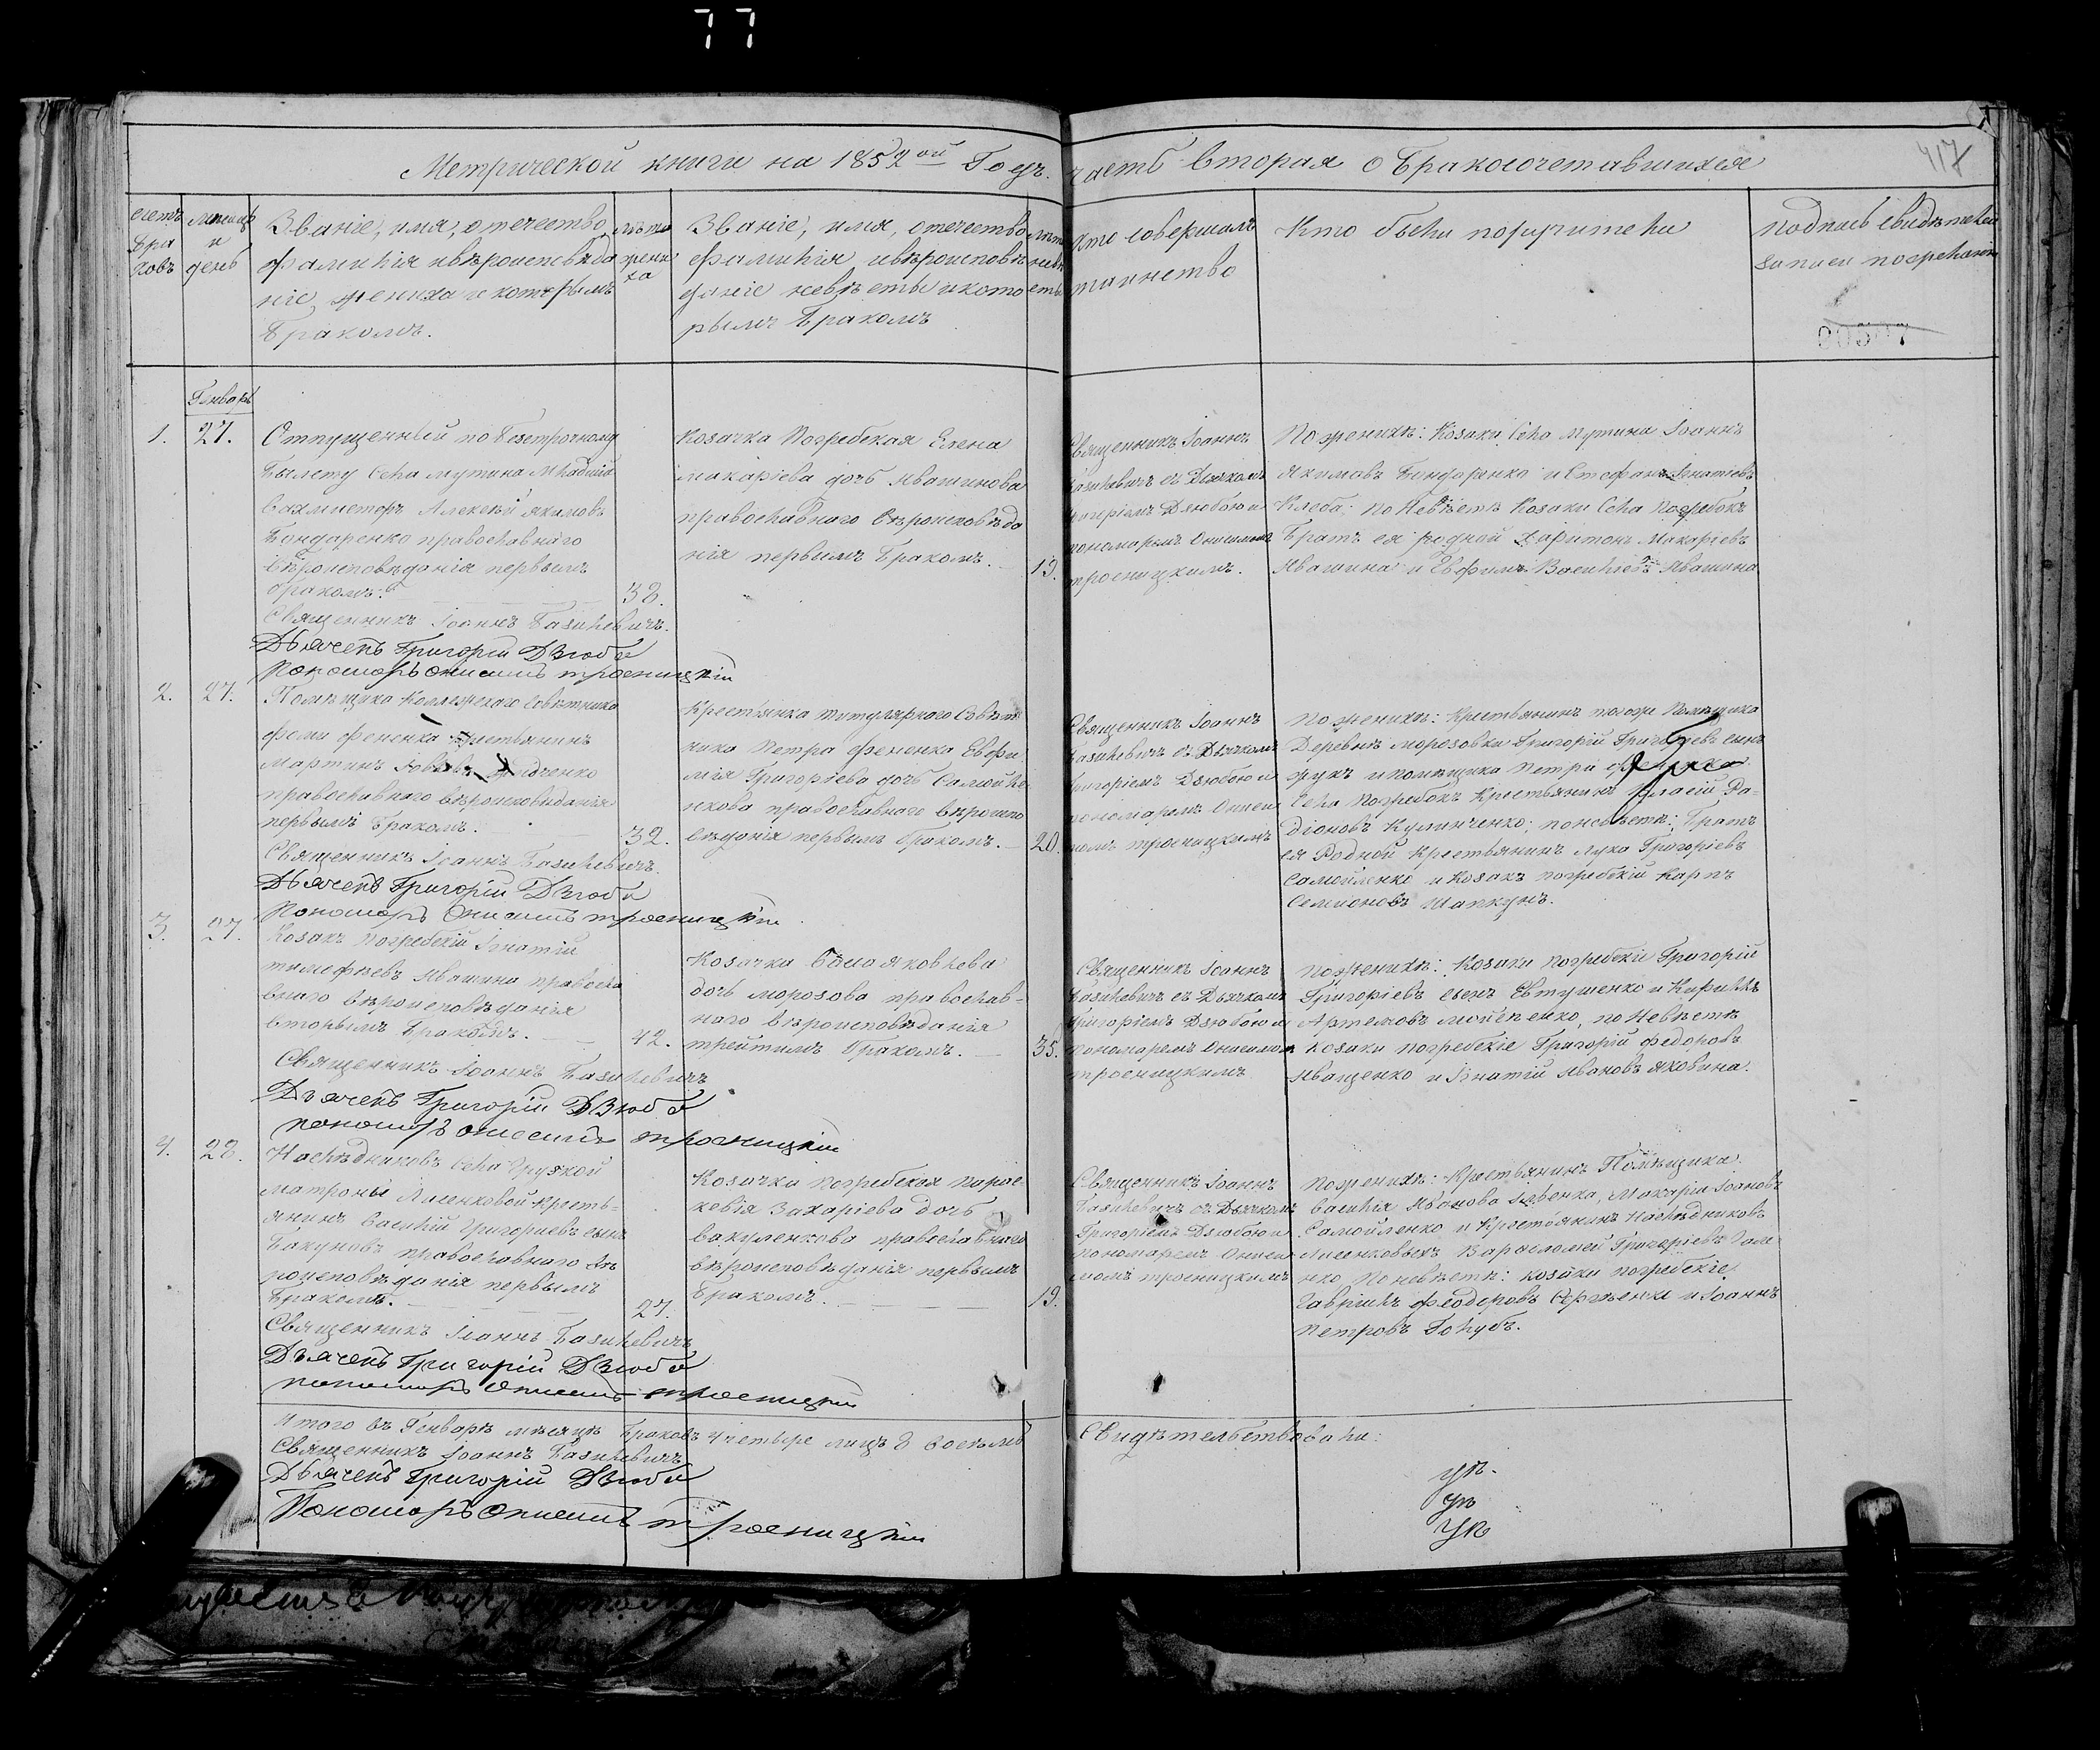 77
Метрической книги на 1852ой Годъ. часть вторая о бракосочетавшихся
417
счетъ браковъ
месяцъ и день
Званіе, имя, отечество,
фамилія и вѣроисповѣда
ніе жениха и которымъ
бракомъ.
лѣта жениха
Званіе, имя, отечество
фамилія и вѣроиспов
даніе невѣсты и кото
рымъ бракомъ
лѣта невѣсты
Кто совершалъ
таинство
Кто были поручители
подпись свидѣтелей
записи по желанію
Генварь
1. 27.
Отпущенный по безсрочному
былету села мутина младшій
вахмистръ Алексѣй якимовъ
Бондаренко православнаго
вѣроисповѣданія первымъ
бракомъ. 38.
Священникъ Іоаннъ Базилевичъ.
Дьячекъ Григорій Дзюба
Пономарь Онисимъ троеницкій
козачка Погребская Елена
макаріева дочь Ивашинова
православного вѣроисповѣда
нія первымъ бракомъ. 19.
Священникъ Іоаннъ
Базилевичъ съ Дьячкомъ
Григоріемъ Дзюбою и
пономаремъ Онисимомъ
троеницкимъ.
По женихѣ: козаки села Мутина Іоаннъ
Якимовъ Бондаренко и Стефанъ Игнатіевъ
Клеба: по Невѣстѣ козаки села Погребокъ
братъ ея родной Харитонъ Макаріевъ
Ивашина и Евфимъ Василіевъ Ивашина
2. 27.
Помѣщика коллежскаго совѣтника
крестьянинъ
Мартинъ
православного вѣроисповѣданія
первымъ бракомъ. 32.
Священникъ Іоаннъ Базилевичъ.
Дьячекъ Григорій Дзюба
Пономарь Онисимъ троеницкій
Крестьянка титулярного Совѣт
ника Петра фененка Евфи
мія Григоріева дочь Самойле
нкова православного вѣроиспо
вѣданія первымъ бракомъ. 20.
Священникъ Іоаннъ
Базилевичъ съ Дьячкомъ
Григоріемъ Дзюбою и
пономаремъ Ониси
момъ троеницкимъ
По женихѣ: крестьянинъ тогоже Помѣщика
Деревнѣ морозовки Григорій Григорьевъ сынъ
жукъ и помѣщика Петра фененка
села Погребокъ крестьянинъ Власій Ра-
діоновъ Кулинченко; по невѣстѣ: братъ
ея Родной крестьянинъ лука Григоріевъ
Самойленко и козакъ погребскій карпъ
Семионовъ Шапкунъ.
3. 27.
Козакъ погребскій Игнатій
тимофѣевъ Ивашина правосла
вного вѣроисповѣданія
вторымъ бракомъ. 42.
Священникъ Іоаннъ Базилевичъ
Дьячекъ Григорій Дзюба
пономарь Онисимъ троеницкій
Козачка яковлева
дочь морозова православ-
ного вѣроисповѣданія
третимъ бракомъ. 35.
Священникъ Іоаннъ
Базилевичъ съ Дьячкомъ
Григоріемъ Дзюбою и
пономаремъ Онисимомъ
троеницкимъ
По женихѣ: козаки погребскіе Григорій
Григоріевъ сынъ Евтушенко и Кирилъ
Артемовъ мойсеенко, по Невѣстѣ
козаки погребскіе Григорій федоровъ
Иващенко и Игнатій Ивановъ яковина.
4. 28.
Наслѣдниковъ села Грузкой
матроны Лисенковой кресть-
янинъ Василій Григоріевъ сынъ
Бакуновъ православного вѣ
роисповѣданія первымъ
бракомъ. 27.
Священникъ Іоаннъ Базилевичъ
Дьячекъ Григорій Дзюба
пономарь Онисимъ троеницкій
Козачка погребская Парас
кевія Захаріева дочь
вакуленкова православного
вѣроисповѣданія первымъ
бракомъ. 19.
Священникъ Іоаннъ
Базилевичъ съ Дьячкомъ
Григоріемъ Дзюбою и
пономаремъ Ониси
момъ троеницкимъ
По женихѣ: крестьянинъ Помѣщика
василія Иванова Макарій Іоановъ
Самойленко и крестьянинъ наслѣдниковъ
лисенковыхъ Варфоломей Григоріевъ Гале
нко по невѣстѣ: козаки погребскіе
Гаврилъ феодоровъ и Іоаннъ
Петровъ Голубъ.
Итого въ Генварѣ мѣсяцѣ браковъ 4 четыре лицъ 8 восемь
Священникъ Іоаннъ Базилевичъ
Дьячекъ Григорій Дзюба
Пономарь Онисимъ троеницкій
Свидѣтельствовали: